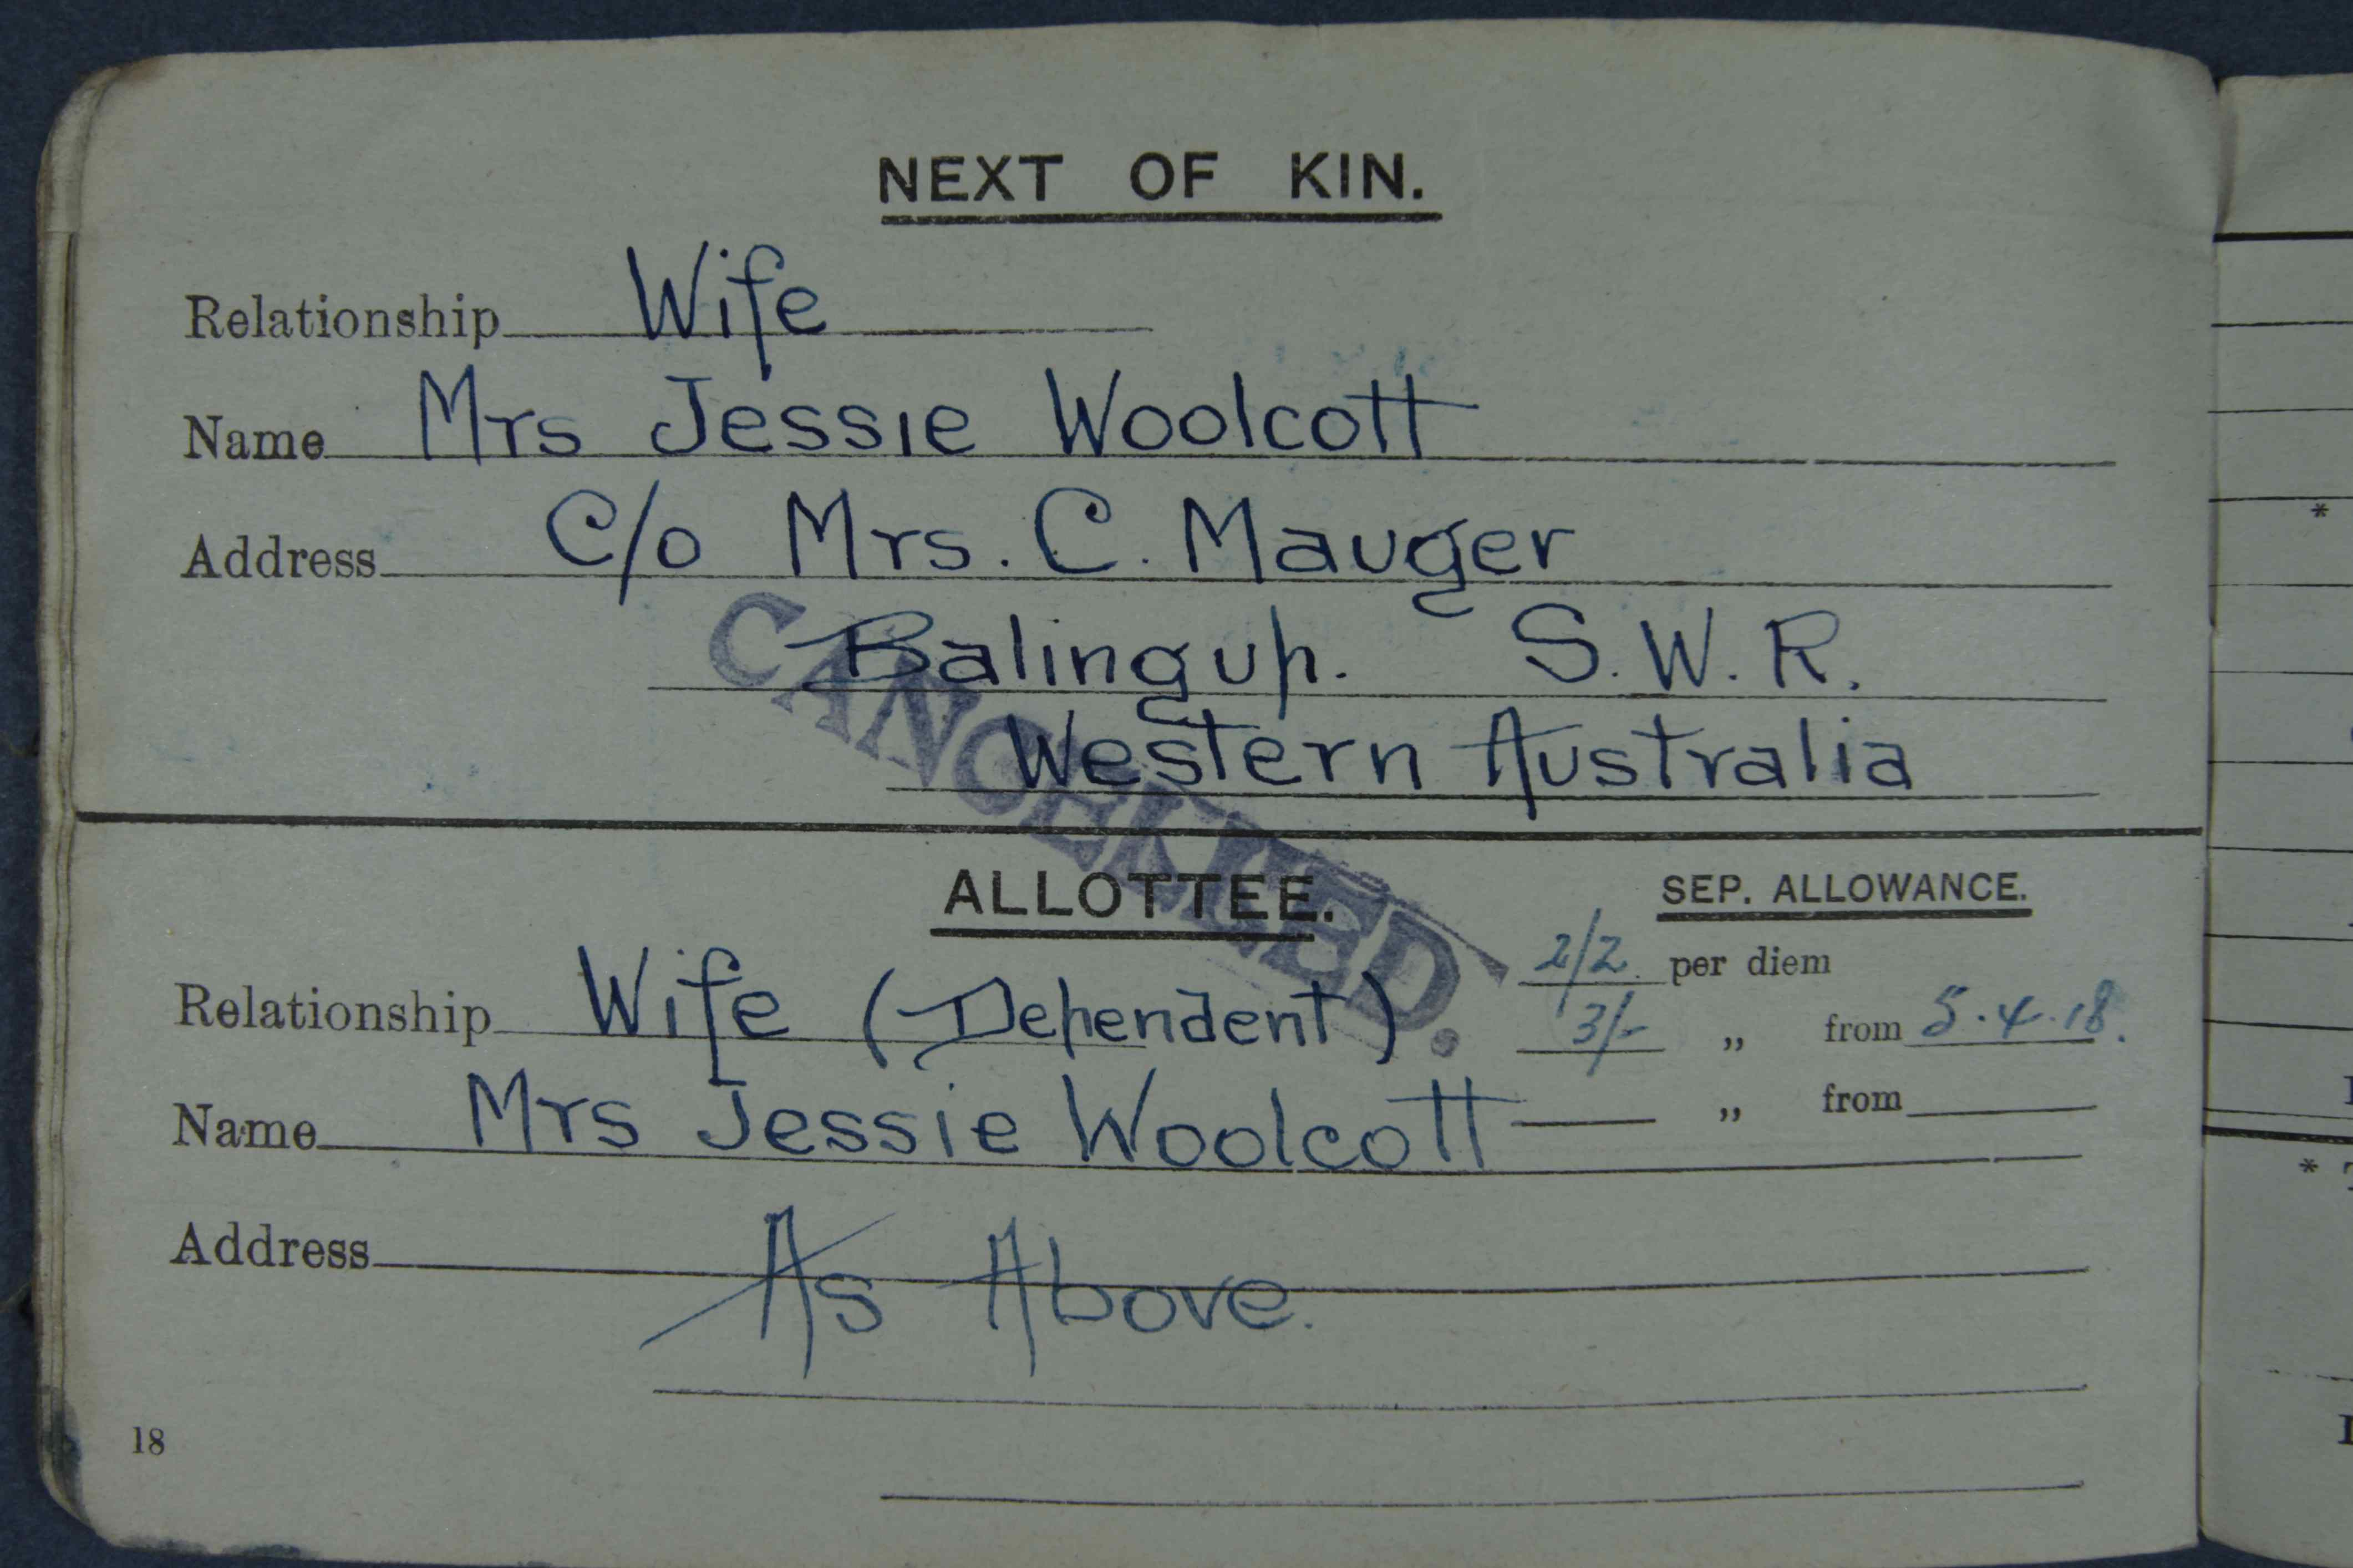 NEXT OF KIN.
Relationship Wife
Name Mrs Jessie Woolcott
Address C/o Mrs. C. Mauger
Balingup. S.W.R.
Western Australia
CANCELLED.
ALLOTTEE.
SEP. ALLOWANCE.
2/2 per diem
Relationship Wife (Dependent)
3/- „ from 5.4.18.
Name Mrs Jessie Woolcott
„ from
Address As Above.
18
*
*